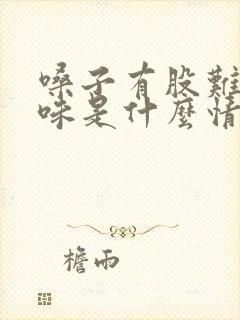 嗓子有股難
味是什麼情
檐雨